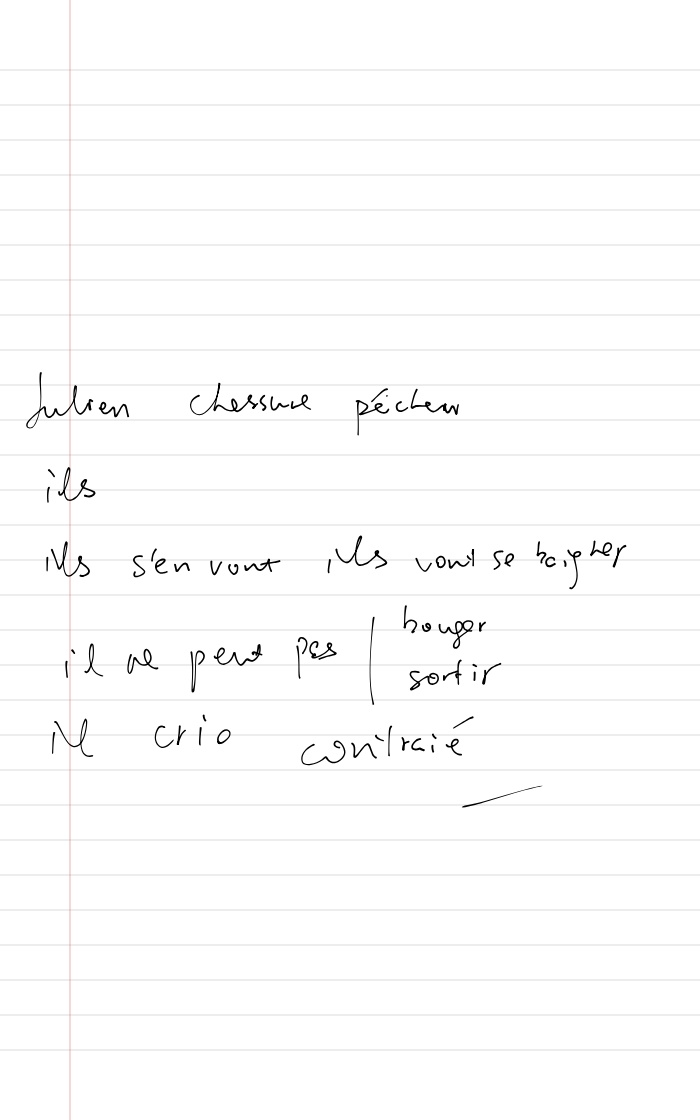 Julien chassure pécheur
ils
ils s'en vont ils vont se baigner
il ne peut pas | bouger
sortir
il crio contraié